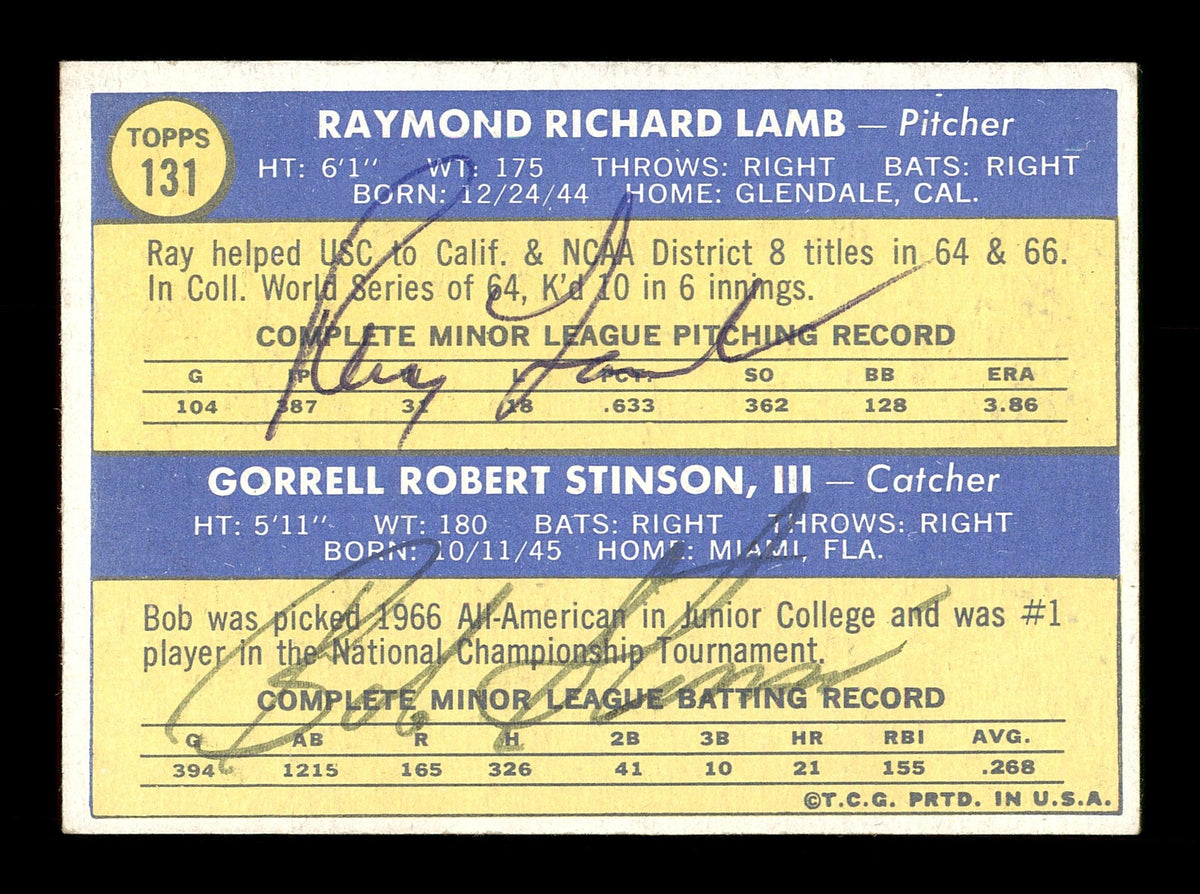 TOPPS
131
RAYMOND RICHARD LAMB — Pitcher
HT: 6'1" WT: 175 THROWS: RIGHT BATS: RIGHT
BORN: 12/24/44 HOME: GLENDALE, CAL.
Ray helped USC to Calif. & NCAA District 8 titles in 64 & 66.
In Coll. World Series of 64, K'd 10 in 6 innings.
COMPLETE MINOR LEAGUE PITCHING RECORD
G IP W L PCT. SO BB ERA
104 387 31 18 .633 362 128 3.86
Ray Lamb
GORRELL ROBERT STINSON, III — Catcher
HT: 5'11" WT: 180 BATS: RIGHT THROWS: RIGHT
BORN: 10/11/45 HOME: MIAMI, FLA.
Bob was picked 1966 All-American in Junior College and was #1
player in the National Championship Tournament.
COMPLETE MINOR LEAGUE BATTING RECORD
G AB R H 2B 3B HR RBI AVG.
394 1215 165 326 41 10 21 155 .268
Bob Stinson
©T.C.G. PRTD. IN U.S.A.